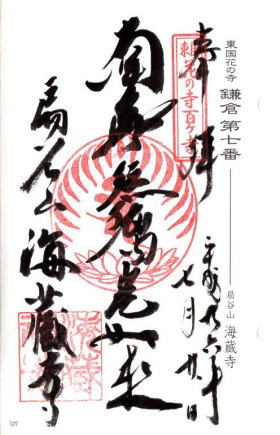 東国花の寺 鎌倉第七番
扇谷山 海蔵寺
奉拝
東国花の寺百ヶ寺
七月廿日
南無薬師如来
扇谷山 海蔵寺
107